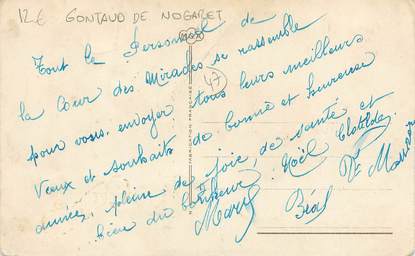 12€ GONTAUD DE NOGARET
Tout le Personnel de
la Cour des Miracles se rassemble
pour vous envoyer tous leurs meilleurs
Veaux et souhaits de bonne et heureuse
année, pleine de joie, de santé et
bien du bonheur. Noël Clotilde
Marcy Béal Vve
47
FABRICATION FRANÇAISE